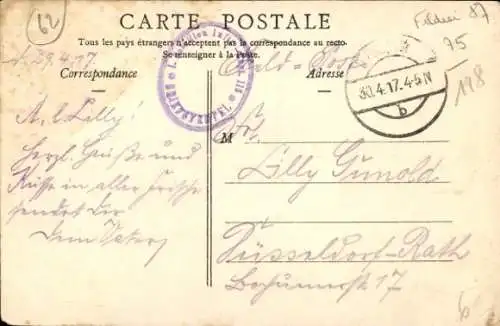 62
Felden 87
75
198
CARTE POSTALE
Tous les pays étrangers n'acceptent pas la correspondance au recto.
Se renseigner à la Poste.
29.4.17.
Feld-Post
Correspondance
Adresse
BRIEFSTEMPEL
30.4.17.4-5N
b
A. l. Lilly!
Herzl. Grüße und
Küsse in aller Frische
sendet Dir
Dein Vater
M
Frl.
Lilly Gunold
Düsseldorf-Rath
Bochumerstr 17
6